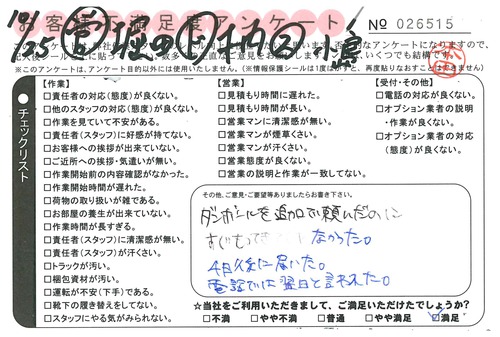 お客様満足度アンケート
No 026515
※このアンケートは、アンケート目的以外には使用いたしません。(※情報保護シールは1度はがすと、再度貼りなおすことはできません)
チェックリスト
【作業】
□責任者の対応(態度)が良くない。
□他のスタッフの対応(態度)が良くない。
□作業を見ていて不安がある。
□責任者(スタッフ)に好感が持てない。
□お客様への挨拶が出来ていない。
□ご近所への挨拶・気遣いが無い。
□作業開始前の内容確認がなかった。
□作業開始時間が遅れた。
□荷物の取り扱いが雑である。
□お部屋の養生が出来ていない。
□作業時間が長すぎる。
□責任者(スタッフ)に清潔感が無い。
□責任者(スタッフ)が汗くさい。
□トラックが汚い。
□梱包資材が汚い。
□運転が不安(下手)である。
□靴下の履き替えをしてない。
□スタッフにやる気がみられない。
【営業】
□見積もり時間に遅れた。
□見積もり時間が長い。
□営業マンに清潔感が無い。
□営業マンが煙草くさい。
□営業マンが汗くさい。
□営業態度が良くない。
□営業の説明と作業が一致してない。
【受付・その他】
□電話の対応が良くない。
□オプション業者の説明
・作業が良くない。
□オプション業者の対応
(態度)が良くない。
その他、ご意見・ご要望等ありましたらお書き下さい。
ダンボールを追加で頼んだのに
なかった。
4日後に届いた。
電話では翌日と言われた。
☆当社をご利用いただきまして、ご満足いただけたでしょうか?
□不満 □やや不満 □普通 □やや満足 □満足